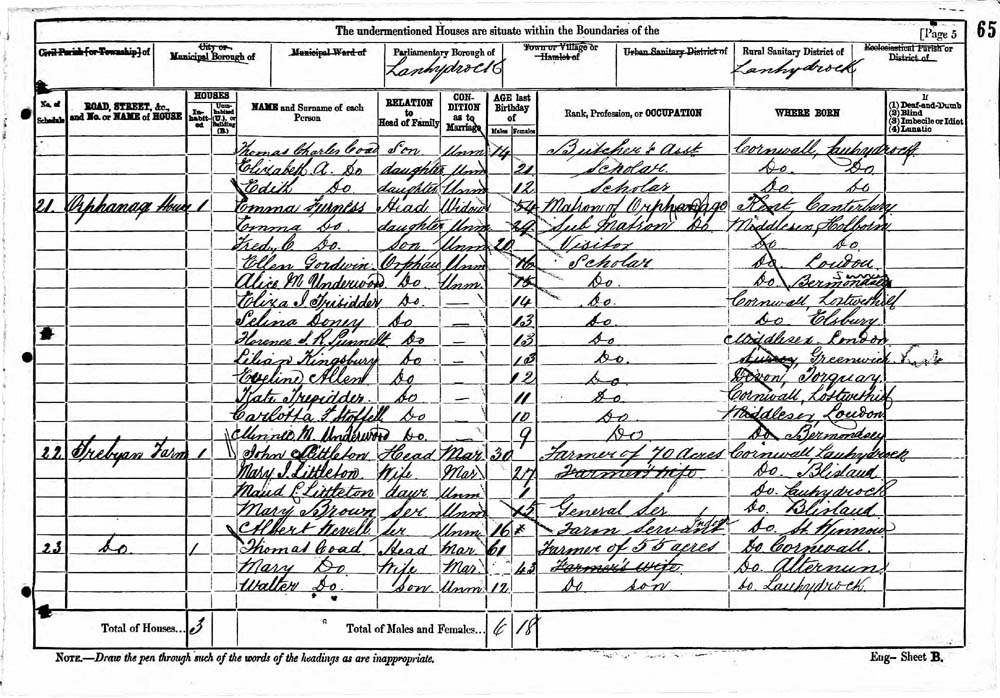 The undermentioned Houses are situate within the Boundaries of the
[Page 5
65
Civil Parish [or Township] of
City or Municipal Borough of
Municipal Ward of
Parliamentary Borough of
Lanhydrock
Town or Village or Hamlet of
Urban Sanitary District of
Rural Sanitary District of
Lanhydrock
Ecclesiastical Parish or District of
No. of Schedule
ROAD, STREET, &c., and No. or NAME of HOUSE
HOUSES
Inhabited
Uninhabited (U.), or Building (B.)
NAME and Surname of each Person
RELATION to Head of Family
CONDITION as to Marriage
AGE last Birthday of
Males
Females
Rank, Profession, or OCCUPATION
WHERE BORN
If
(1) Deaf-and-Dumb
(2) Blind
(3) Imbecile or Idiot
(4) Lunatic
Thomas Charles Coad Son Unm 14 Butcher's Asst Cornwall, Lanhydrock
Elizabeth A. Do daughter Unm 21 Scholar Do. Do
Edith Do daughter Unm 12 Scholar Do Do
21. Orphanage House 1 Emma Furness Head Widow 54 Matron of Orphanage Kent Canterbury
Emma Do. daughter Unm 29 Sub Matron Do. Middlesex, Holborn
Fred. C. Do. Son Unm 20 Visitor Do Do.
Ellen Gordwin Orphan Unm 16 Scholar Do London
Alice M Underwood Do. Unm 15 Do. Do Bermondsey
Eliza J Trisidder Do. — 14 Do. Cornwall, Lostwithiel
Selina Doney Do — 13 Do. Do Elsbury
Florence S. R. Punnelt Do — 13 Do Middlesex London
Lilian Kingsbury Do — 13 Do. Surrey Greenwich
Eveline Allen Do — 12 Do. Devon, Torquay
Kate Tresidder Do — 11 Do. Cornwall, Lostwithiel
Carlotta F Stoffell Do — 10 Do. Middlesex, London
Minnie M. Underwood Do. 9 Do Do Bermondsey
22 Trebyan Farm 1 John Littleton Head Mar 30 Farmer of 70 Acres Cornwall Lanhydrock
Mary J. Littleton Wife Mar 27 Farmer's Wife Do. Blisland
Maud L. Littleton daur Unm 1 Do. Lanhydrock
Mary Brown Ser Unm 15 General Ser Do. Blisland
Albert Nevell Ser Unm 16 Farm Servant Indoor Do St. Winnow
23 Do. 1 Thomas Coad Head Mar 61 Farmer of 55 acres Do Cornwall.
Mary Do Wife Mar 43 Farmer's Wife Do. Alternun
Walter Do. Son Unm 12 Do son Do. Lanhydrock
Total of Houses... 3
Total of Males and Females... 6 18
NOTE.—Draw the pen through such of the words of the headings as are inappropriate.
Eng— Sheet B.